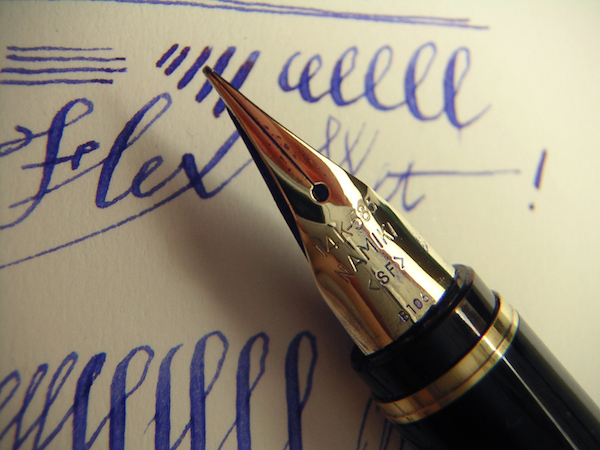 Flex !
14K-585
NAMIKI
<SF>
B106